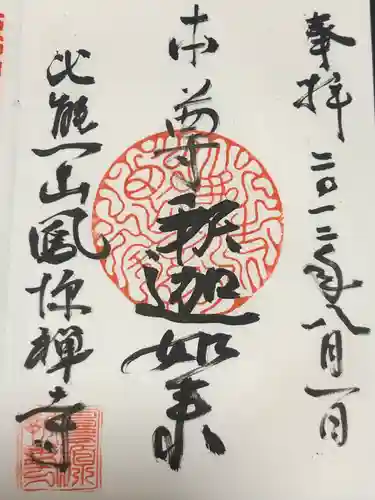 奉拝 二〇一二年八月一日
本尊釈迦如来
比熊山鳳源禅寺